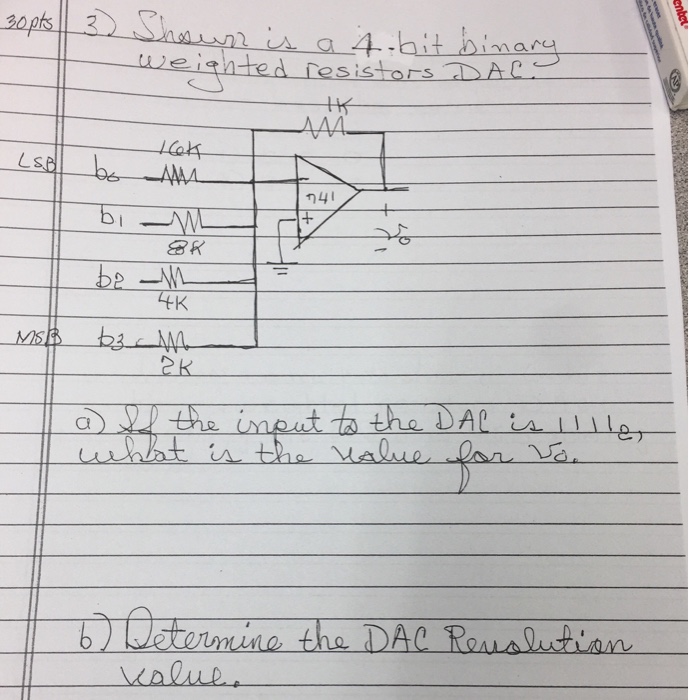 30pts 3) Shown is a 4-bit binary
weighted resistors DAC.
1K
16K
LSB b0
741
b1
+
+
8K
Vo
-
b2
4K
MSB b3
2K
a) If the input to the DAC is 1111₂,
what is the value for Vo.
b) Determine the DAC Resolution
value.